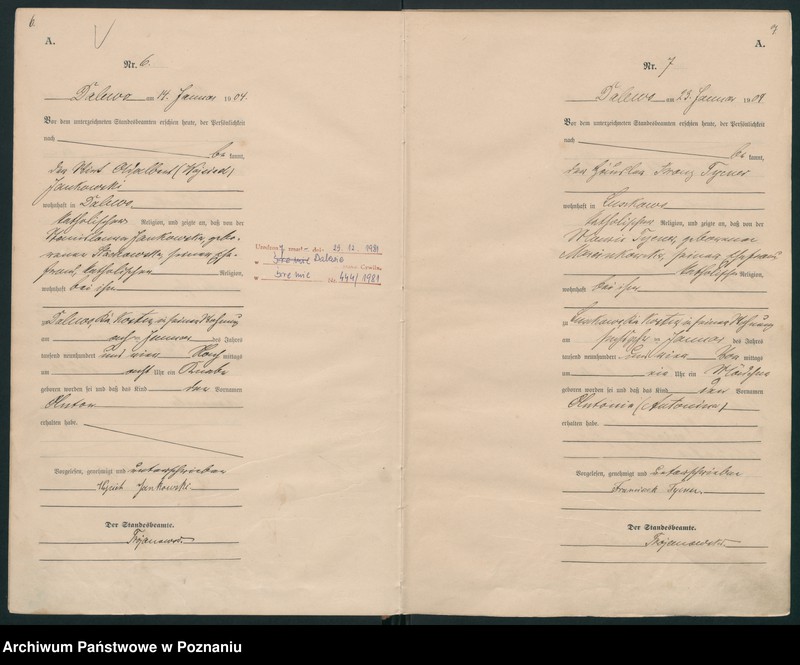 6.
A.
Nr. 6.
Dalewo am 14. Januar 1904.
Vor dem unterzeichneten Standesbeamten erschien heute, der Persönlichkeit
nach
be kannt,
der Wirt Adalbert (Wojciech)
Jankowski
wohnhaft in Dalewo
katholischer Religion, und zeigte an, daß von der
Stanislawa Jankowska, gebo-
renen seiner Ehe-
frau, katholischen Religion,
wohnhaft bei ihm
zu Dalewo, in seiner Wohnung
am Januar des Jahres
tausend neunhundert und vier Nach mittags
um acht Uhr ein Knabe
geboren worden sei und daß das Kind den Vornamen
Anton
erhalten habe.
Vorgelesen, genehmigt und unterschrieben
Jankowski
Der Standesbeamte.
Trojanowski
29. 12. 1981
Dalewo
Śremie Nr. 444/1981
7
A.
Nr. 7
Dalewo am 23. Januar 1904
Vor dem unterzeichneten Standesbeamten erschien heute, der Persönlichkeit
nach
be kannt,
der Häusler Franz
wohnhaft in Luskowo
katholischer Religion, und zeigte an, daß von der
geborenen
Marcinkowska, seiner Ehefrau
katholischer Religion,
wohnhaft bei ihm
zu Luskowo in seiner Wohnung
am Januar des Jahres
tausend neunhundert und vier Vor mittags
um ein Uhr ein Mädchen
geboren worden sei und daß das Kind den Vornamen
Antonie (Antonina)
erhalten habe.
Vorgelesen, genehmigt und unterschrieben
Der Standesbeamte.
Trojanowski
Archiwum Państwowe w Poznaniu